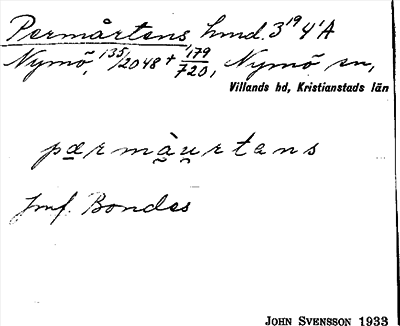 Permårtens hmd. 3¹⁹4¹A
Nymö, 135/2048 + 179/720, Nymö sn,
Villands hd, Kristianstads län
pærmàu̯rtans
Jmf Bondes
JOHN SVENSSON 1933